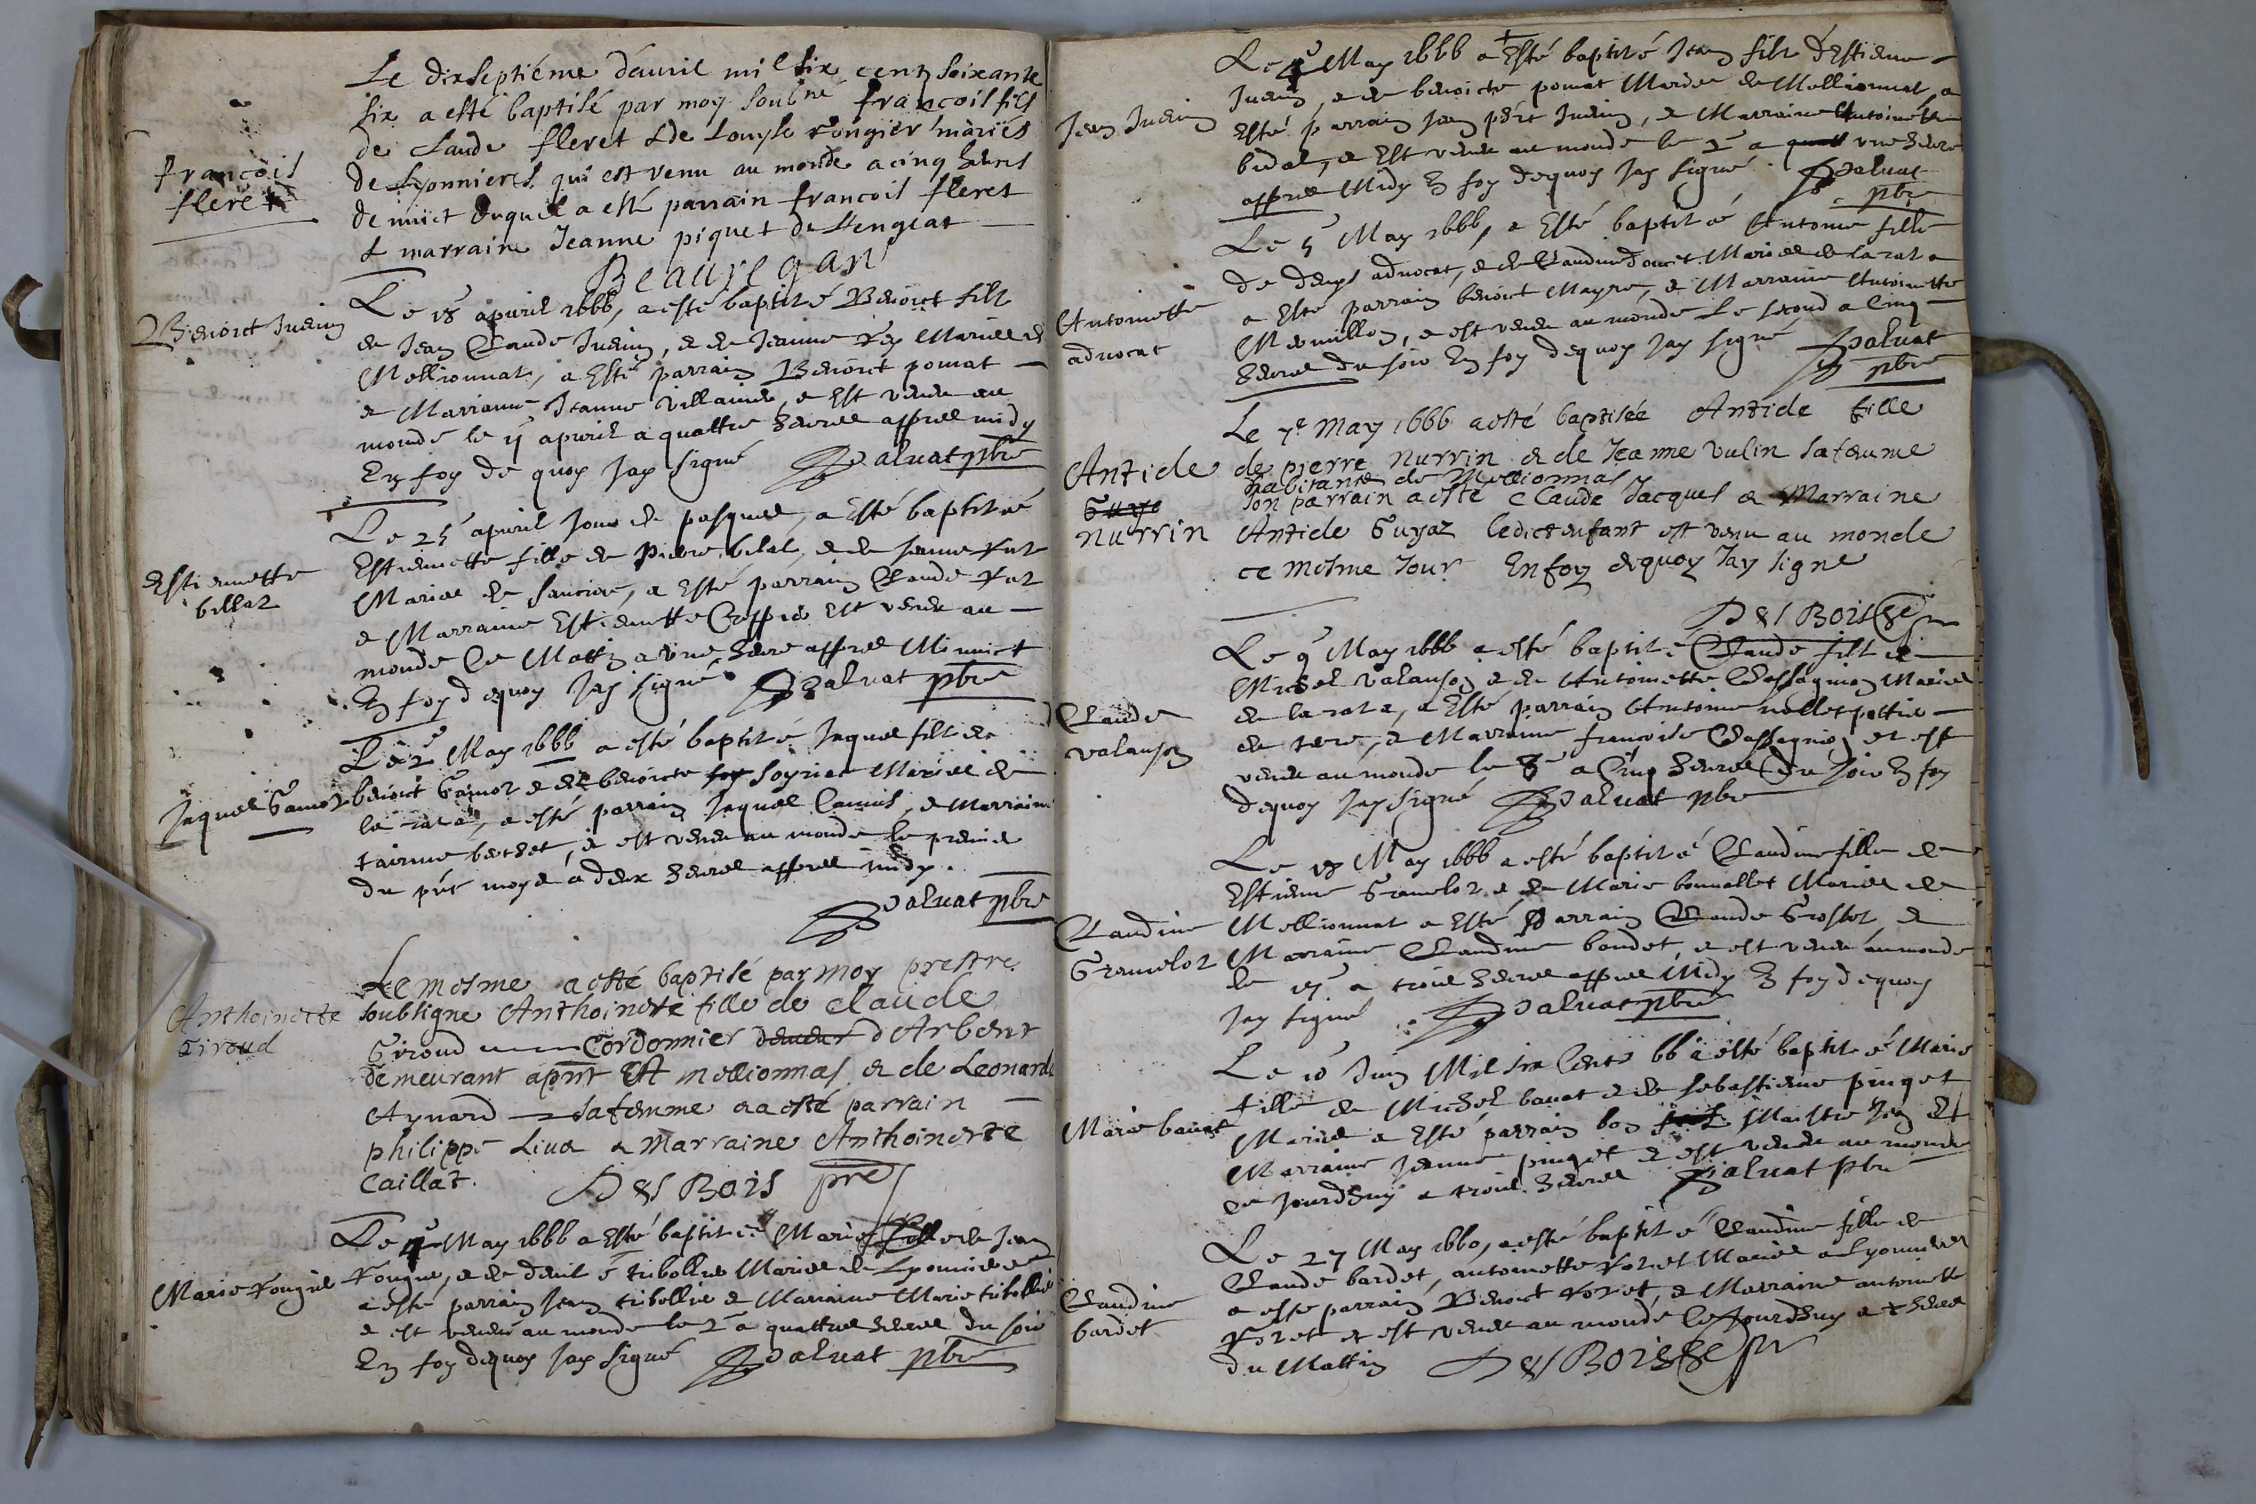 Le dixseptiéme d'auril mil six cent soixante
six a esté baptisé par moy soubné francois fils
de Claude fleret & de Louyse rongier mariés
de Lyonnieres qui est venu au monde a cinq heures
de nuict duquel a esté parrain francois fleret
& marraine Jeanne piquet de
Beauregar
francois
fleret
Le 18 apuril 1666, a esté baptisé Benoict filz
de Jean Claude Juenin, e de Jeanne Rey Mariés de
Mellionnat, a Esté parrain Benoict pomat
e Marianne Jeanne Villaine, e Est venu au
monde le apuril a quattre heures appres midy
En foy de quoy Jay signé Paluat pbre
Benoict Juenin
Le 25 apuril Jour de pasques, a Esté baptisé
Estiennette fille de pierre billat, e de Jeanne
Mariés de sanciat, a Esté parrain Claude
e Marraine Estiennette Est venue au
monde Le Mattin a une heure appres Minuict
En foy dequoy Jay signé Paluat pbre
Estiennette
billat
Le 2 May 1666 a esté baptisé Jaques filz de
benoict Gamot e de benoicte soyrier Mariés de
la rata, a esté parrain Jaques Camus, e Marraine
e est venu au monde le premier
du pnt moys a deux heures appres midy.
Paluat pbre
Jaques Gamot
Le mesme a esté baptisé par moy prestre
soubsigne Anthoinette fille de Claude
Giroud Cordonnier d'Arbent
demeurant apñt a mellionnas & de Leonarde
Aynard sa femme & a esté parrain
philippe Liua & Marraine Anthoinette
Caillat. Des Bois pre
Anthoinette
Giroud
Le 4 May 1666 a Esté baptisé Marie fille de Jean
Rongier, e de tribollier Mariés de Lyonnieres
a esté parrain Jean tribollier e Marraine Marie tribollier
e est venue au monde le 2 a quattre heures du soir
En foy dequoy Jay signé Paluat pbre
Marie Rongier
Le 4 May 1666 a Esté baptisé Jean filz d'Estienne
Juenin, e de benoicte pomat Mariés de Mellionnat, a
Esté parrain Jean pierre Juenin, e Marraine Antoinette
bidal, e Est venu au monde le 2 a une heure
appres Midy En foy dequoy Jay signé Paluat
pbre
Jean Juenin
Le 5 May 1666, a Esté baptisé Antoine fille
de denys aduocat, e de Claudine doucet Mariés de la rata
a Esté parrain benoict Mayre, e Marraine Antoinette
Mermillon, e est venue au monde Le second a Cinq
heures du soir En foy dequoy Jay signé Paluat
pbre
Antoinette
aduocat
Le 7e May 1666 a esté baptisée Antide fille
de pierre Nurrin & de Jeanne Vulin sa femme
habitants de Mellionnas
son parrain a esté Claude Jacques & Marraine
Antide Guyaz ledict enfant est venu au monde
ce mesme Jour En foy dequoy Jay signe
Des Bois pre
Antide
Nurrin
Le 9 May 1666 a esté baptisé Claude filz de
Michel Valanson e de Antoinette Chassagnion Mariés
de la rata, a Esté parrain Antoine nallet pottier
de terre, e Marraine francoise Chassagnion et est
venu au monde le 8 a Cinq heures du soir En foy
dequoy Jay signé Paluat pbre
Claude
Valanson
Le 18 May 1666 a esté baptisé Claudine fille de
Estienne Gramelot e de Marie bonnallet Mariés de
Mellionnat a Esté parrain Claude Grosset e
Marraine Claudine bondet, e est venue au monde
le a troix heures appres Midy En foy dequoy
Jay signé Paluat pbre
Claudine
Gramelot
Le 10 Juin Mil six Cents 66 a esté baptisé Marie
fille de Michel bauat e de sebastienne pinget
Mariés a Esté parrain Maistre Jean
Marraine Jeanne pinget e est venue au monde
ce Jourdhuy a troix heures Paluat pbre
Marie bauat
Le 27 May 1660, a esté baptisé Claudine fille de
Claude bardet, antoinette Voret Mariés a Lyonnieres
a esté parrain Benoict Voret, e Marraine antoinette
Voret et est venue au monde ce Jourdhuy a heures
du Mattin Des Bois pre
Claudine
bardet